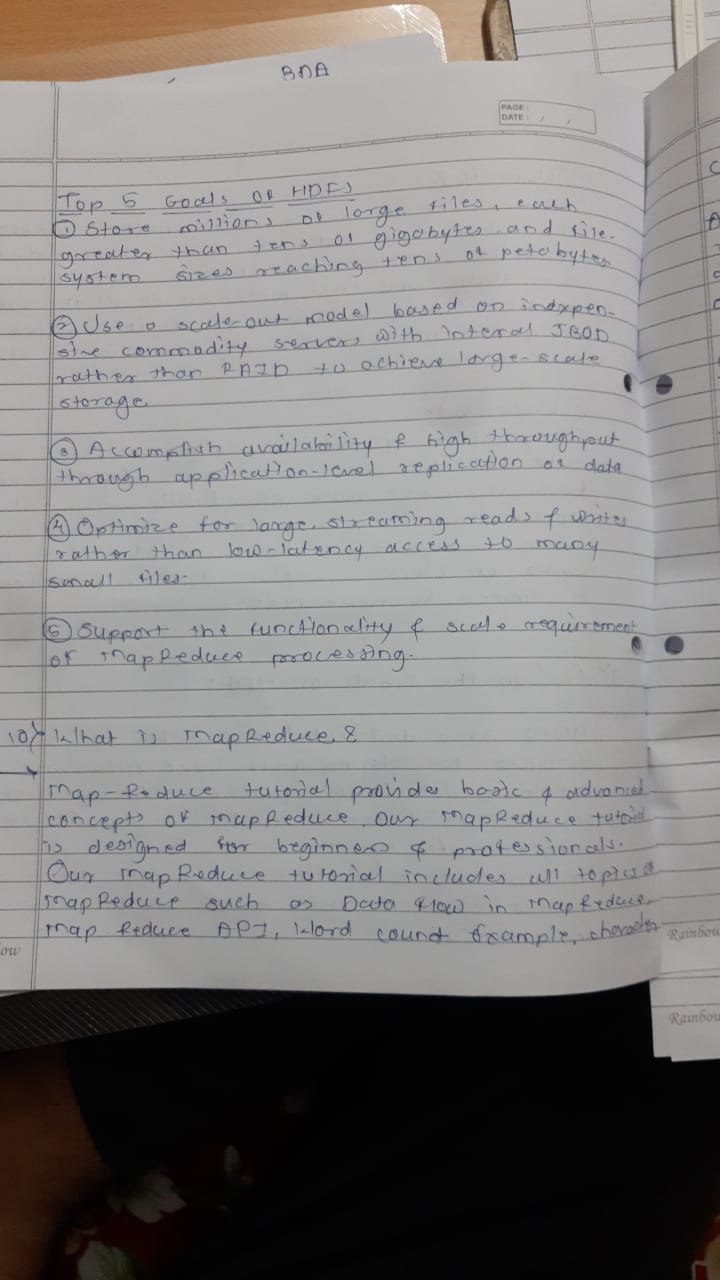 BDA
PAGE:
DATE: / /
Top 5 Goals OF HDFS
① Store millions of large files, each
greater than tens of gigabytes and file-
system sizes reaching tens of petabytes
② Use a scale-out model based on indxpen-
sive commodity servers with internal JBOD
rather than RAID to achieve large-scale
storage
③ Accomplish availability & high throughput
through application-level replication of data
④ Optimize for large, streaming reads & writes
rather than low-latency access to many
small files.
⑤ Support the functionality & scale requirement
of MapReduce processing.
10) What is MapReduce?
→
Map-Reduce tutorial provides basic & advanced
concepts of mapReduce. Our MapReduce tutorial
is designed for beginners & professionals.
Our MapReduce tutorial includes all topics of
MapReduce such as Data flow in MapReduce,
Map Reduce API, Word count Example, character
ow
Rainbow
Rainbow